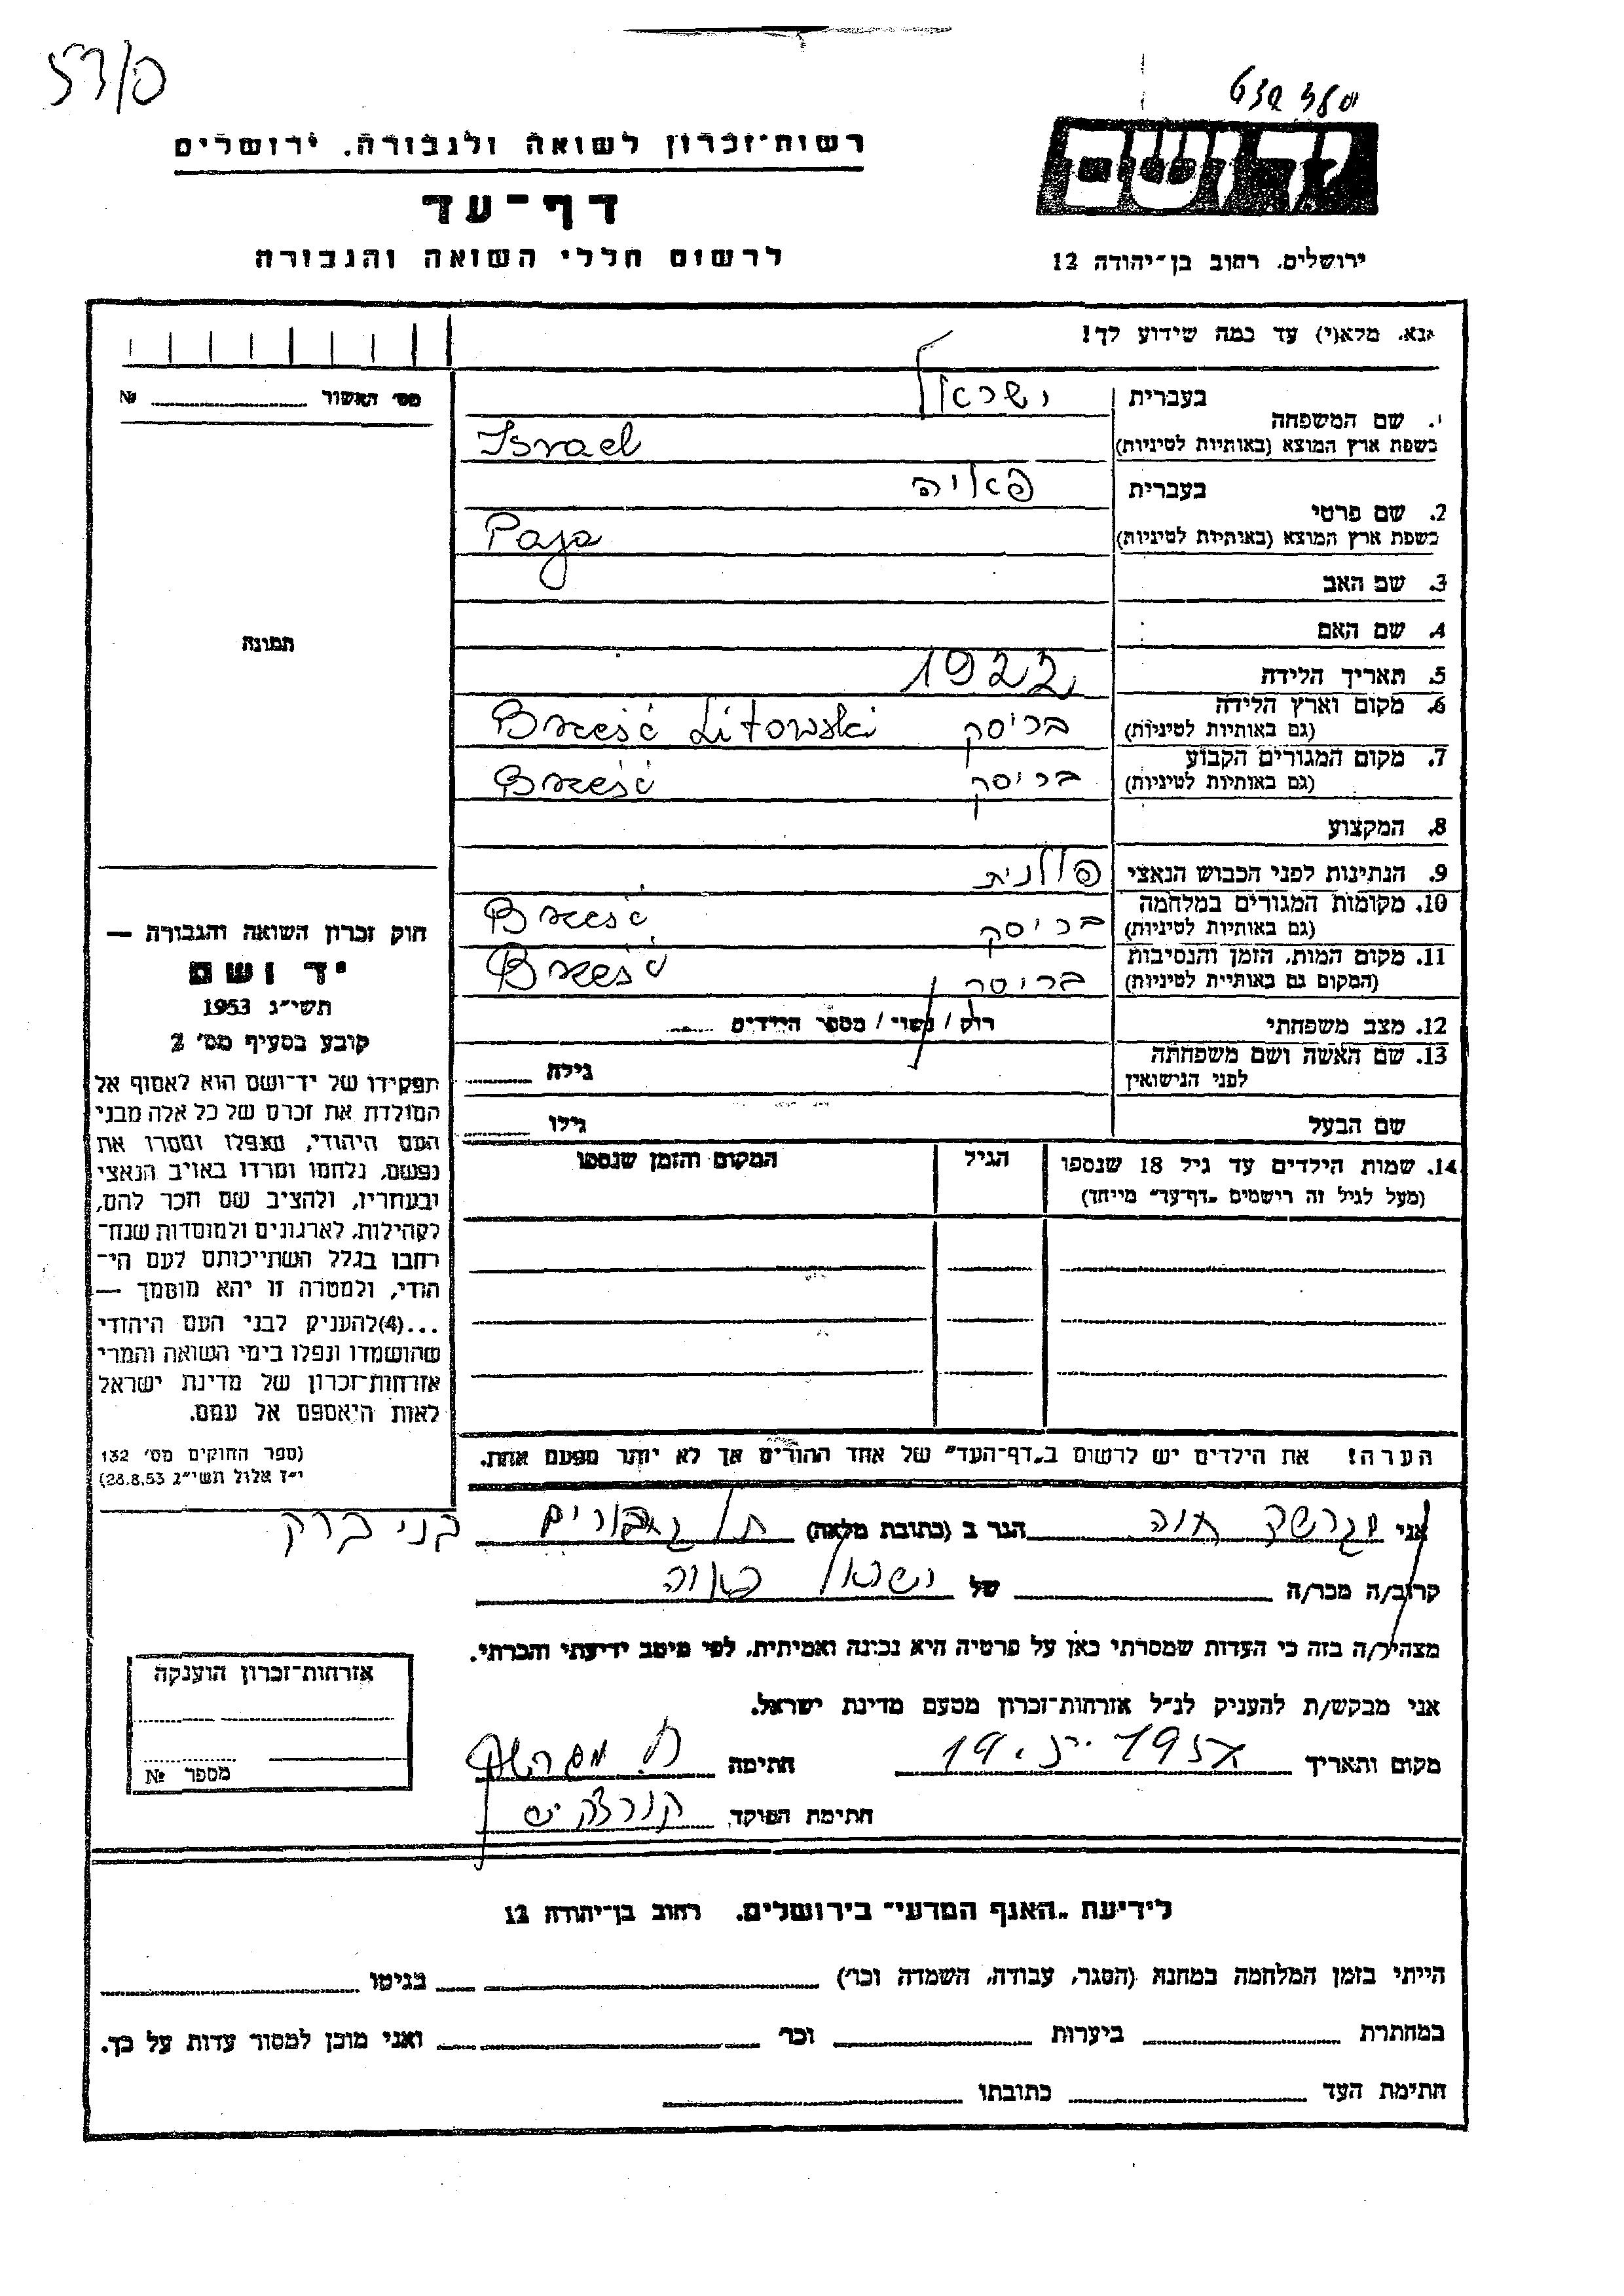 רשות־זכרון לשואה ולגבורה. ירושלים
דף־עד
לרשום חללי השואה והגבורה
יד ושם
ירושלים. רחוב בן־יהודה 12
נא. מלא(י) עד כמה שידוע לך!
מס׳ האשור № 
1. שם המשפחה
בעברית ישראל
בשפת ארץ המוצא (באותיות לטיניות) Israel
2. שם פרטי
בעברית פאיה
בשפת ארץ המוצא (באותיות לטיניות) Paja
3. שם האב
4. שם האם
5. תאריך הלידה 1922
6. מקום וארץ הלידה (גם באותיות לטיניות) בריסק Brześć Litowski
7. מקום המגורים הקבוע (גם באותיות לטיניות) בריסק Brześć
8. המקצוע
9. הנתינות לפני הכבוש הנאצי פולנית
10. מקומות המגורים במלחמה (גם באותיות לטיניות) בריסק Brześć
11. מקום המות. הזמן והנסיבות (המקום גם באותיות לטיניות) בריסק Brześć
12. מצב משפחתי רוק / נשוי / מספר הילדים
13. שם האשה ושם משפחתה לפני הנישואין גילה
שם הבעל גילו
14. שמות הילדים עד גיל 18 שנספו (מעל לגיל זה רישמים „דף־עד״ מייחד) הגיל המקום והזמן שנספו
הערה! את הילדים יש לרשום ב„דף־העד״ של אחד ההורים אך לא יותר מפעם אחת.
תמונה
חוק זכרון השואה והגבורה —
יד ושם
תשי״ג 1953
קובע בסעיף מס׳ 2
תפקידו של יד־ושם הוא לאסוף אל
המולדת את זכרם של כל אלה מבני
העם היהודי, שנפלו ומסרו את
נפשם, נלחמו ומרדו באויב הנאצי
ובעוזריו, ולהציב שם וזכר להם,
לקהילות, לארגונים ולמוסדות שנח־
רבו בגלל השתייכותם לעם הי־
הודי, ולמטרה זו יהא מוסמך —
...(4)להעניק לבני העם היהודי
שהושמדו ונפלו בימי השואה והמרי
אזרחות־זכרון של מדינת ישראל
לאות היאספם אל עמם.
(ספר החוקים מס׳ 132
י״ז אלול תשי״ג 28.8.53)
אני חוה הגר ב (כתובת מלאה) תל גיבורים בני ברק
קרוב/ה מכר/ה של ישראל
מצהיר/ה בזה כי העדות שמסרתי כאן על פרטיה היא נכונה ואמיתית. לפי מיטב ידיעתי והכרתי.
אני מבקש/ת להעניק לנ״ל אזרחות־זכרון מטעם מדינת ישראל.
מקום ותאריך חתימה
חתימת הפוקד
אזרחות־זכרון הוענקה
מספר №
לידיעת „האגף המדעי״ בירושלים. רחוב בן־יהודה 12
הייתי בזמן המלחמה במחנה (הסגר, עבודה, השמדה וכו׳) בגיטו
במחתרת ביערות וכו׳ ואני מוכן למסור עדות על כך.
חתימת העד כתובתו